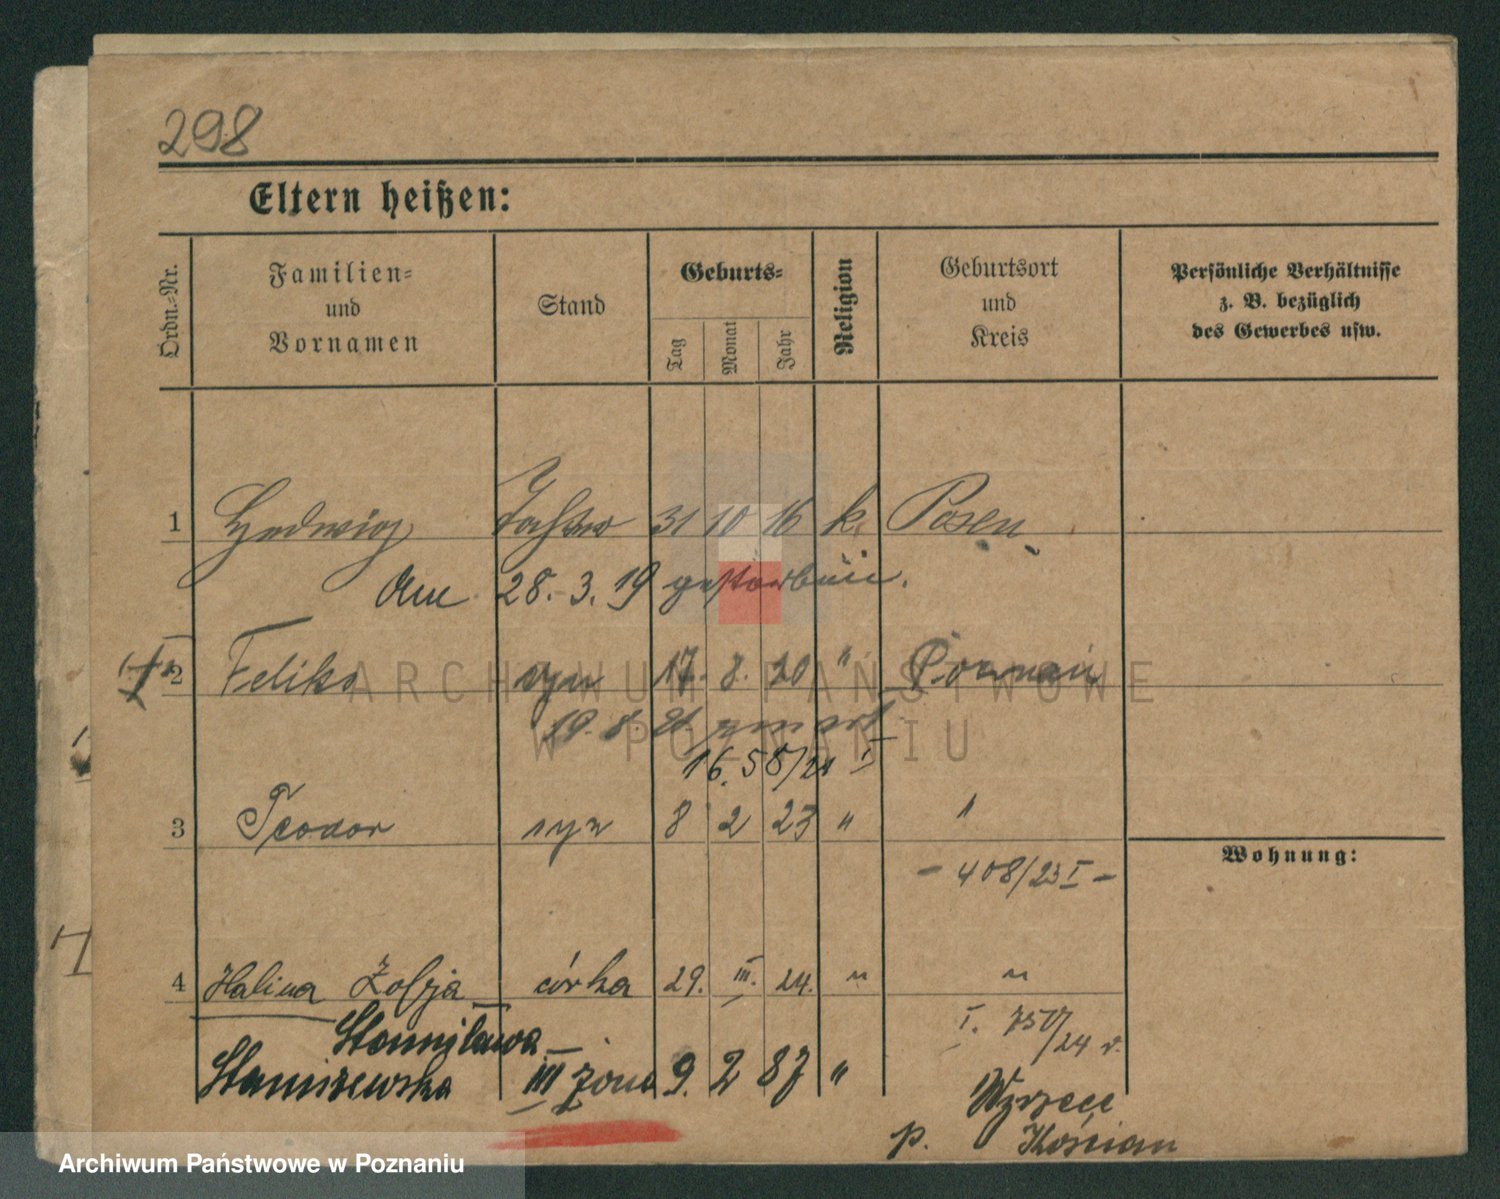 298
Eltern heißen:
Ordn.=Nr.
Familien=
und
Vornamen
Stand
Geburts=
Tag
Monat
Jahr
Religion
Geburtsort
und
Kreis
Persönliche Verhältnisse
z. B. bezüglich
des Gewerbes usw.
1 Hedwig Tochter 31 10 16 k. Posen
Am 28. 3. 19 gestorben.
2 Feliks syn 17. 8. 20 " Poznań
19. 8. 21 zmarł
16.58/21 I
3 Teodor syn 8 2 23 "
- 408/23 I -
Wohnung:
4 Halina Zofja córka 29. III. 24. " "
I. 750/24 r.
Stanisława
Staniszewska III żona 9. 2 87 "
p. Kościan
ARCHIWUM PAŃSTWOWE
W POZNANIU
Archiwum Państwowe w Poznaniu